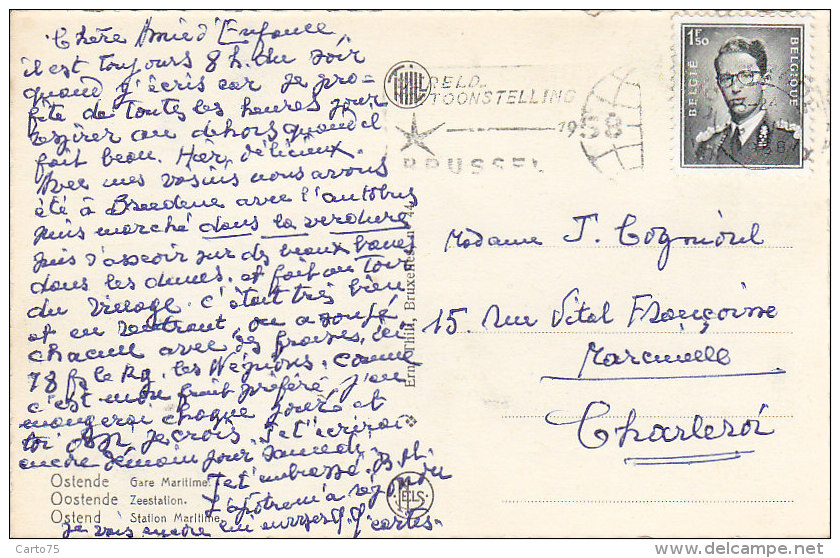 Chère Amie d'Enfance,
il est toujours 8 h. du soir
quand j'écris car je pro-
fite de toutes les heures pour
respirer au dehors quand il
fait beau. Hier, délicieux.
Avec mes voisins nous avons
été à Breedene avec l'autobus
puis marché dans la verdure
puis s'asseoir sur des beaux bancs
dans les dunes. et fait un tour
du village. C'était très bien
et en rentrant, on a soupé,
chacun avec des fraises, ici
78 fs le kg. les Comme
c'est mon fruit préféré j'en
mangerai chaque jour et
toi aussi je crois. Je t'écrirai
encore demain pour Samedi.
Je t'embrasse.
je vais encore lui cartes
Ostende Gare Maritime.
Oostende Zeestation.
Ostend Station Maritime.
Ern. Thill, Bruxelles
ELS
WERELD
TOONSTELLING
1958
BRUSSEL
1F50
BELGIË
BELGIQUE
Madame J. Cognioul
15. rue Vital Françoisse
Marcinelle
Charleroi
Carto75
delcampe.net